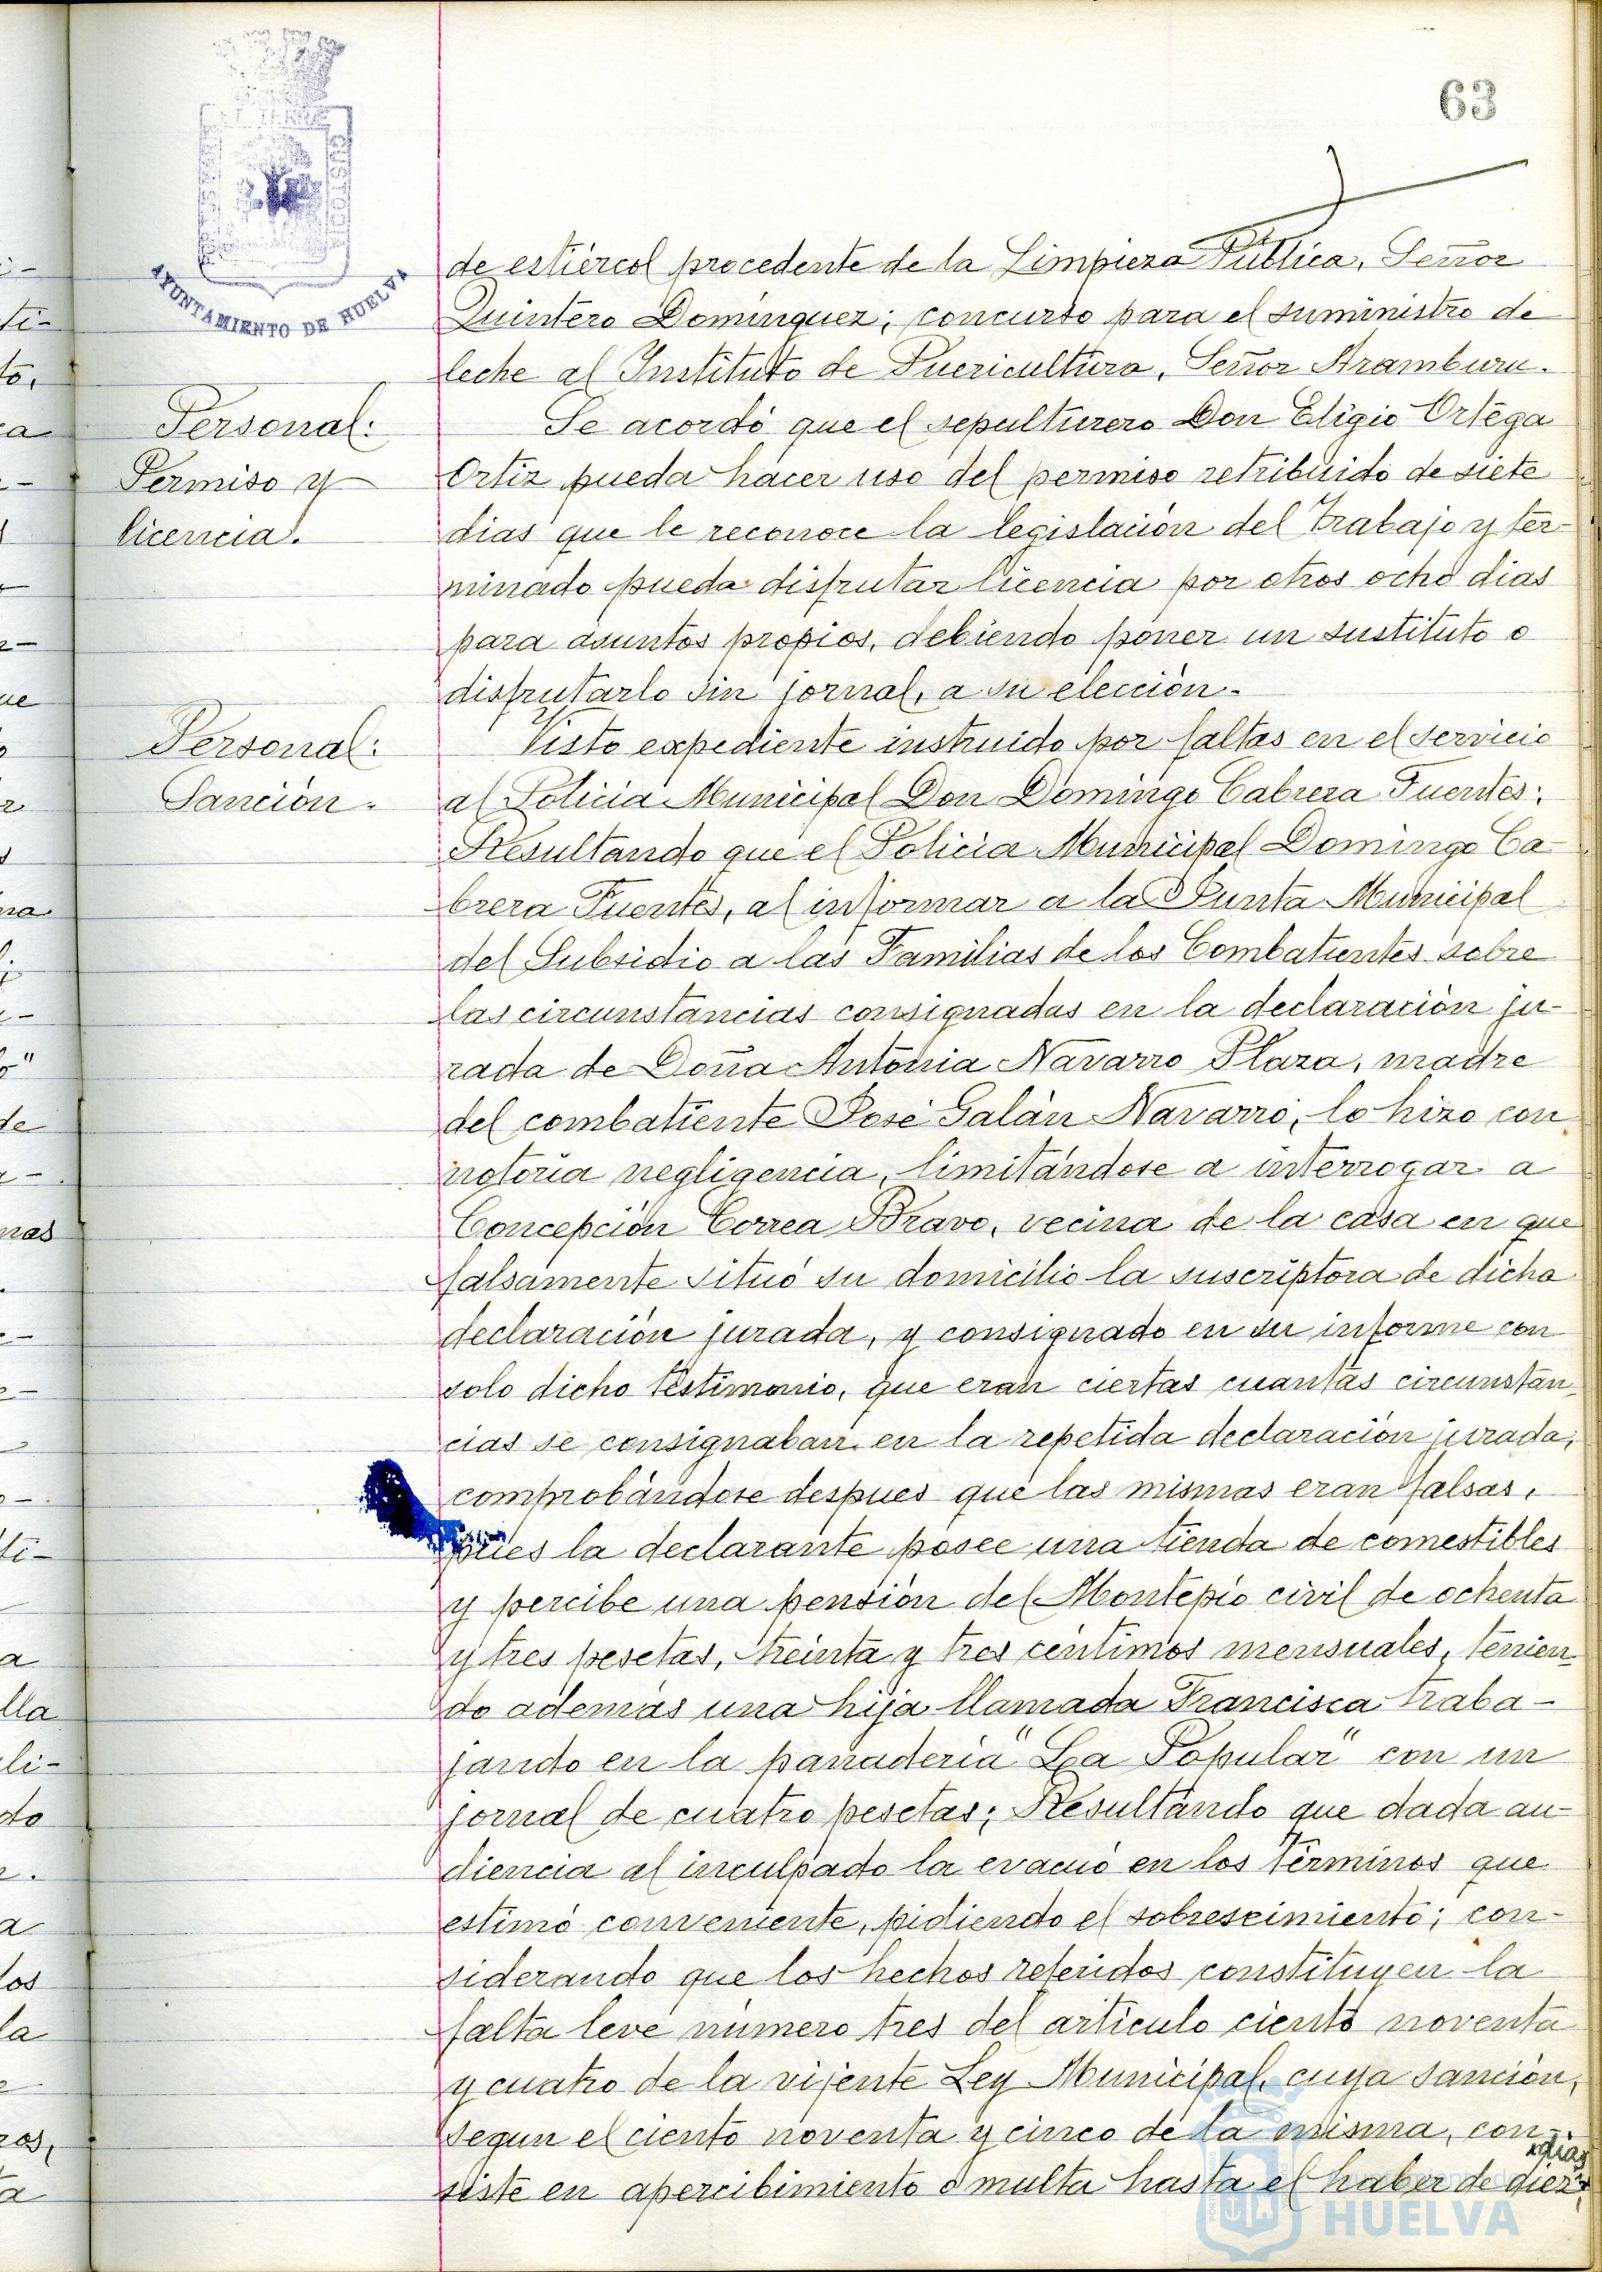 63
AYUNTAMIENTO DE HUELVA
de estiércol procedente de la Limpieza Pública, Señor
Quintero Dominguez; concurso para el suministro de
leche al Instituto de Puericultura, Señor Aramburu.
Personal:
Permiso y
licencia.
Se acordó que el sepulturero Don Eligio Ortega
Ortiz pueda hacer uso del permiso retribuido de siete
dias que le reconoce la legislación del Trabajo y ter-
minado pueda disfrutar licencia por otros ocho dias
para asuntos propios, debiendo poner un sustituto o
disfrutarlo sin jornal, a su elección.-
Personal:
Sanción.
Visto expediente instruido por faltas en el servicio
al Policia Municipal Don Domingo Cabrera Fuentes;
Resultando que el Policia Municipal Domingo Ca-
brera Fuentes, al informar a la Junta Municipal
del Subsidio a las Familias de los Combatientes sobre
las circunstancias consignadas en la declaración ju-
rada de Doña Antonia Navarro Plaza, madre
del combatiente José Galán Navarro, lo hizo con
notoria negligencia, limitándose a interrogar a
Concepción Correa Bravo, vecina de la casa en que
falsamente situó su domicilio la suscriptora de dicha
declaración jurada, y consignado en su informe con
solo dicho testimonio, que eran ciertas cuantas circunstan-
cias se consignaban en la repetida declaración jurada,
comprobándose despues que las mismas eran falsas,
pues la declarante posee una tienda de comestibles
y percibe una pensión del Montepio civil de ochenta
y tres pesetas, treinta y tres centimos mensuales, tenien-
do además una hija llamada Francisca traba-
jando en la panaderia "La Popular" con un
jornal de cuatro pesetas; Resultando que dada au-
diencia al inculpado la evacuó en los términos que
estimó conveniente, pidiendo el sobreseimiento; con-
siderando que los hechos referidos constituyen la
falta leve número tres del articulo ciento noventa
y cuatro de la vijente Ley Municipal, cuya sanción,
segun el ciento noventa y cinco de la misma, con-
siste en apercibimiento o multa hasta el haber de diez dias;
HUELVA